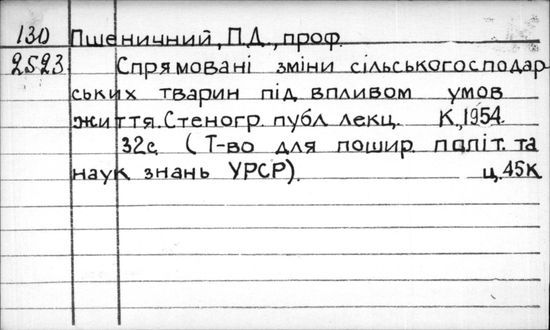 130 Пшеничний, П.Д., проф.
2523 Спрямовані зміни сільськогосподар
ських тварин під впливом умов
життя. Стеногр. публ. лекц. К., 1954.
32с. (Т-во для пошир. політ. та
наук знань УРСР). ц. 45к